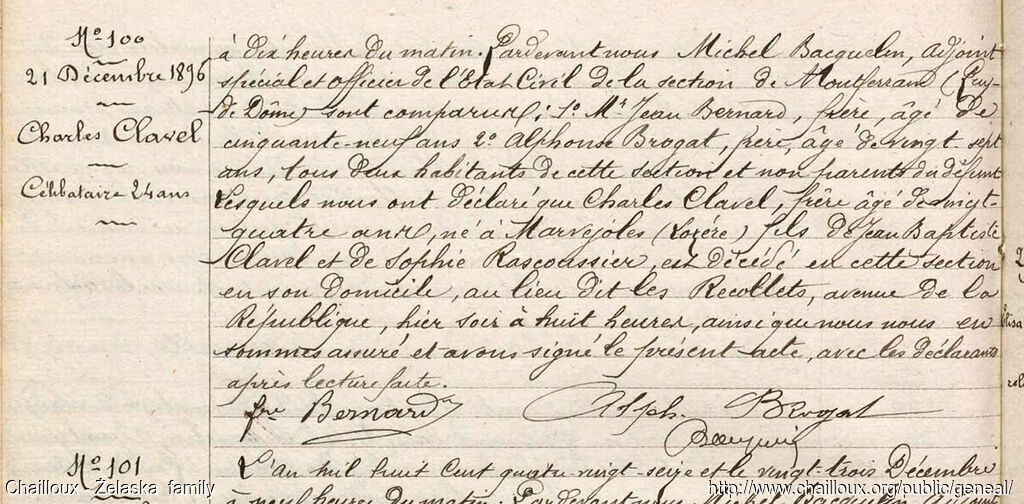 No 100
21 Décembre 1896
Charles Clavel
Célibataire 24 ans
à dix heures du matin. Pardevant nous Michel Bacquelin, adjoint
spécial et officier de l'Etat Civil de la section de Montferrand (Puy-
de Dôme) sont comparus : 1o Mr Jean Bernard, frère, âgé de
cinquante-neuf ans 2o Alphonse Brogat, frère, âgé de vingt-sept
ans, tous deux habitants de cette section et non parents du défunt
Lesquels nous ont déclaré que Charles Clavel, frère âgé de vingt-
quatre ans, né à Marvejols (Lozère) fils de Jean Baptiste
Clavel et de Sophie Rascoussier, est décédé en cette section
en son domicile, au lieu dit les Recollets, avenue de la
République, hier soir à huit heures, ainsi que nous nous en
sommes assuré et avons signé le présent acte, avec les déclarants
après lecture faite.
fre Bernard
Alph. Brogat
No 101
L'an mil huit cent quatre-vingt-seize et le vingt-trois Décembre
à neuf heures du matin. Pardevant nous Michel Bacquelin adjoint
Chailloux - Żelaska family
http://www.chailloux.org/public/geneal/